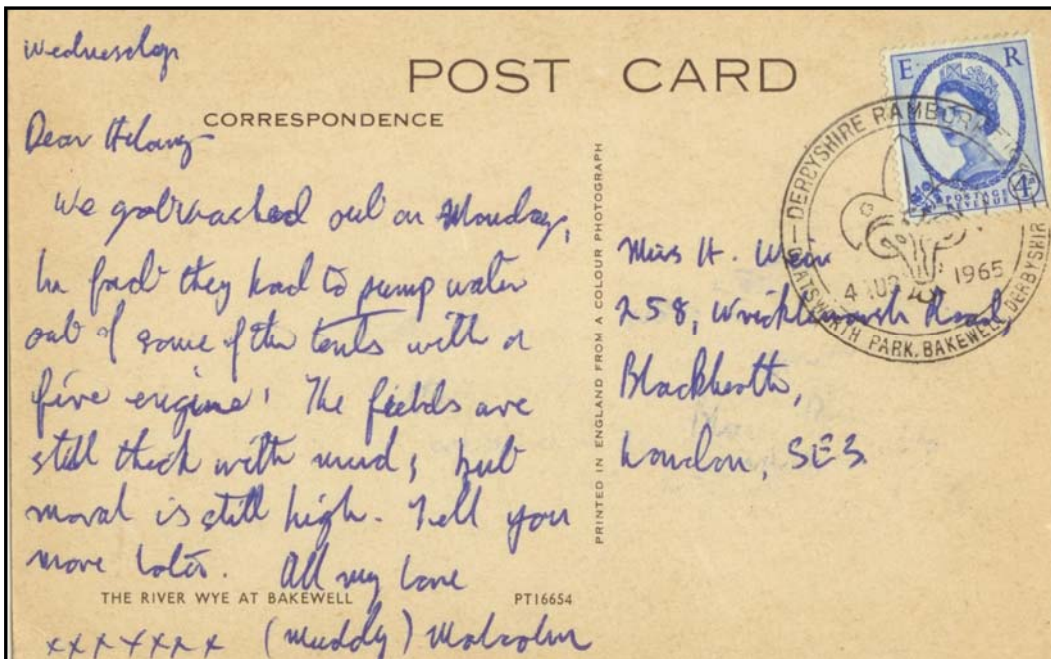 Wednesday
POST CARD
CORRESPONDENCE
Dear Hilary
We got washed out on Monday,
In fact they had to pump water
out of some of the tents with a
fire engine! The fields are
still thick with mud, but
moral is still high. Tell you
more later. All my love
THE RIVER WYE AT BAKEWELL PT16654
xxxxxxx (muddy) Malcolm
PRINTED IN ENGLAND FROM A COLOUR PHOTOGRAPH
Miss H. Weir
258, Wricklemarsh Road,
Blackheath,
London, SE3.
E R
4D
POSTAGE
REVENUE
DERBYSHIRE
4 AUG 1965
CHATSWORTH PARK, BAKEWELL, DERBYSHIRE